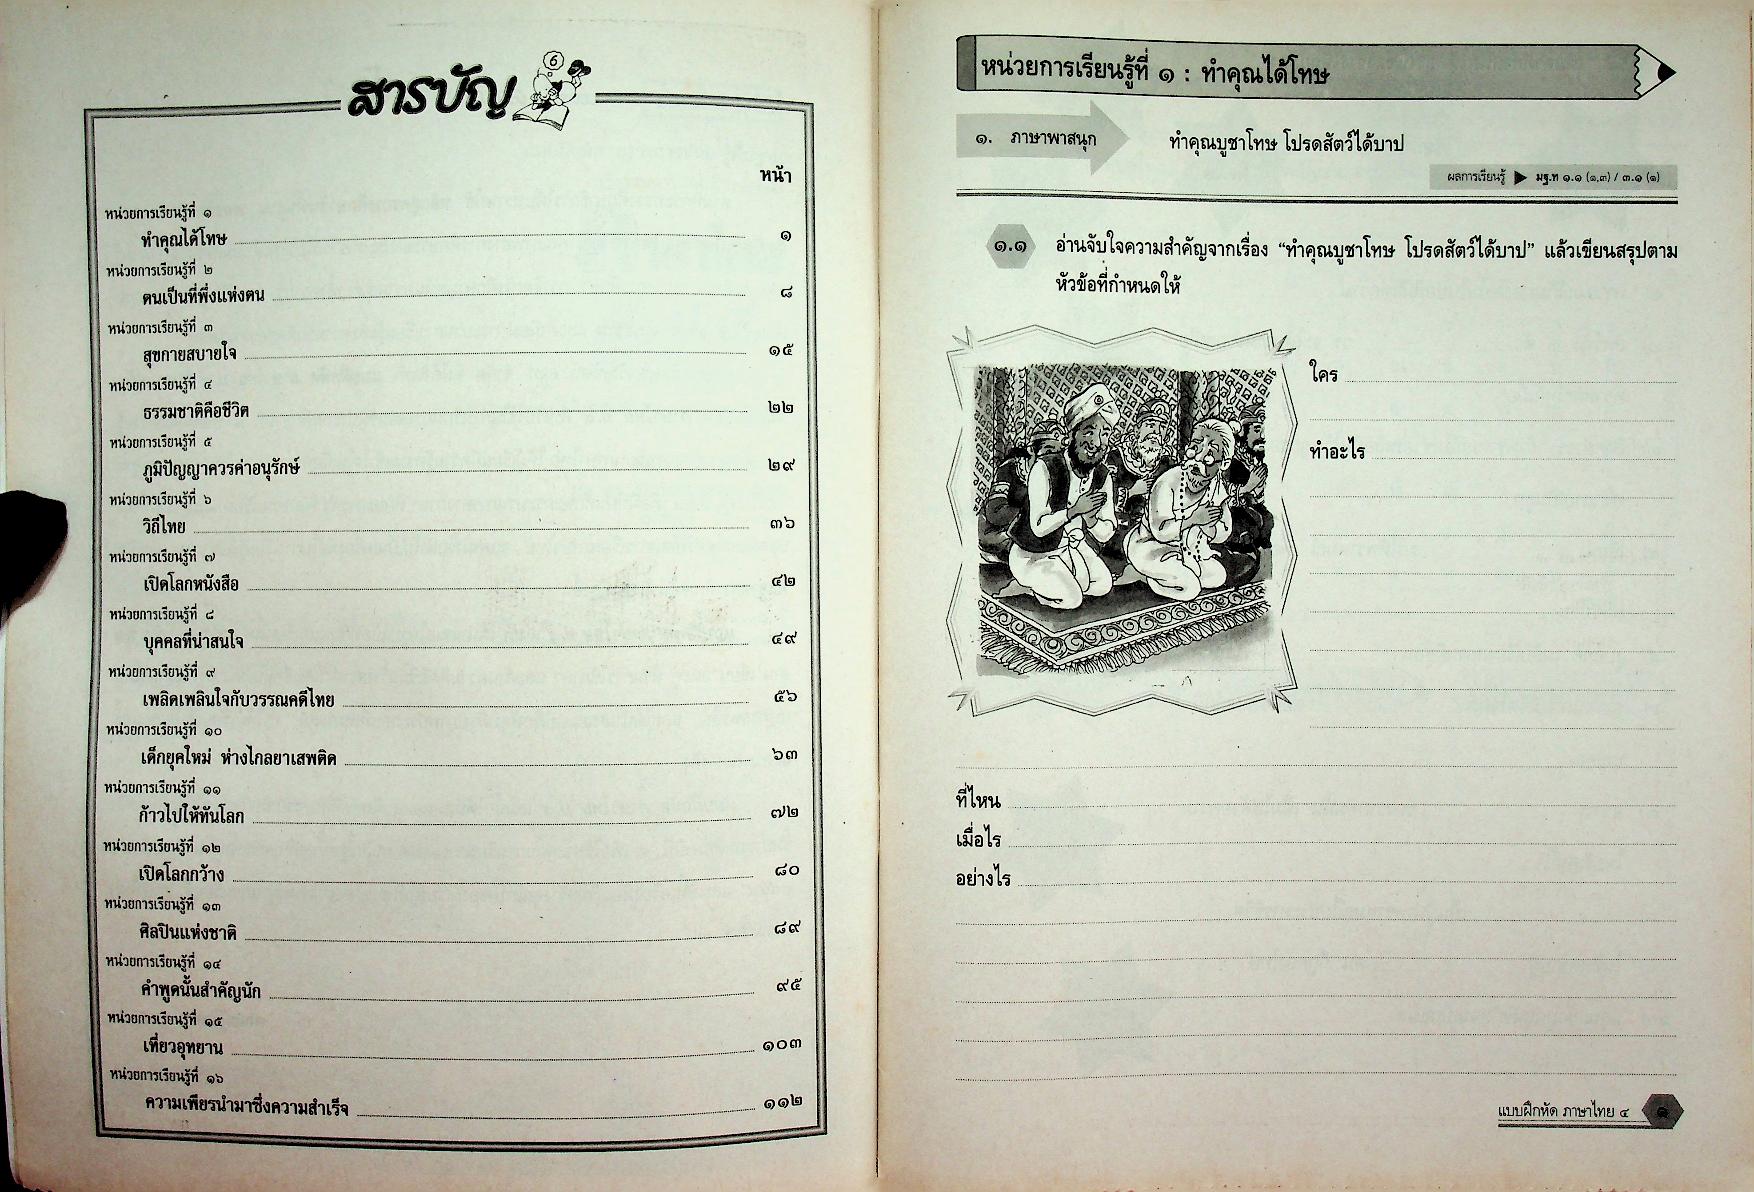 สารบัญ
6
หน้า
หน่วยการเรียนรู้ที่ ๑
ทำคุณได้โทษ ๑
หน่วยการเรียนรู้ที่ ๒
ตนเป็นที่พึ่งแห่งตน ๘
หน่วยการเรียนรู้ที่ ๓
สุขกายสบายใจ ๑๕
หน่วยการเรียนรู้ที่ ๔
ธรรมชาติคือชีวิต ๒๒
หน่วยการเรียนรู้ที่ ๕
ภูมิปัญญาควรค่าอนุรักษ์ ๒๙
หน่วยการเรียนรู้ที่ ๖
วิถีไทย ๓๖
หน่วยการเรียนรู้ที่ ๗
เปิดโลกหนังสือ ๔๒
หน่วยการเรียนรู้ที่ ๘
บุคคลที่น่าสนใจ ๔๙
หน่วยการเรียนรู้ที่ ๙
เพลิดเพลินใจกับวรรณคดีไทย ๕๖
หน่วยการเรียนรู้ที่ ๑๐
เด็กยุคใหม่ ห่างไกลยาเสพติด ๖๓
หน่วยการเรียนรู้ที่ ๑๑
ก้าวไปให้ทันโลก ๗๒
หน่วยการเรียนรู้ที่ ๑๒
เปิดโลกกว้าง ๘๐
หน่วยการเรียนรู้ที่ ๑๓
ศิลปินแห่งชาติ ๘๙
หน่วยการเรียนรู้ที่ ๑๔
คำพูดนั้นสำคัญนัก ๙๕
หน่วยการเรียนรู้ที่ ๑๕
เที่ยวอุทยาน ๑๐๓
หน่วยการเรียนรู้ที่ ๑๖
ความเพียรนำมาซึ่งความสำเร็จ ๑๑๒
หน่วยการเรียนรู้ที่ ๑ : ทำคุณได้โทษ
๑. ภาษาพาสนุก ทำคุณบูชาโทษ โปรดสัตว์ได้บาป
ผลการเรียนรู้ ▶ มฐ.ท ๑.๑ (๑,๓) / ๓.๑ (๑)
๑.๑ อ่านจับใจความสำคัญจากเรื่อง “ทำคุณบูชาโทษ โปรดสัตว์ได้บาป” แล้วเขียนสรุปตาม
หัวข้อที่กำหนดให้
ใคร
ทำอะไร
ที่ไหน
เมื่อไร
อย่างไร
แบบฝึกหัด ภาษาไทย ๔ ๑